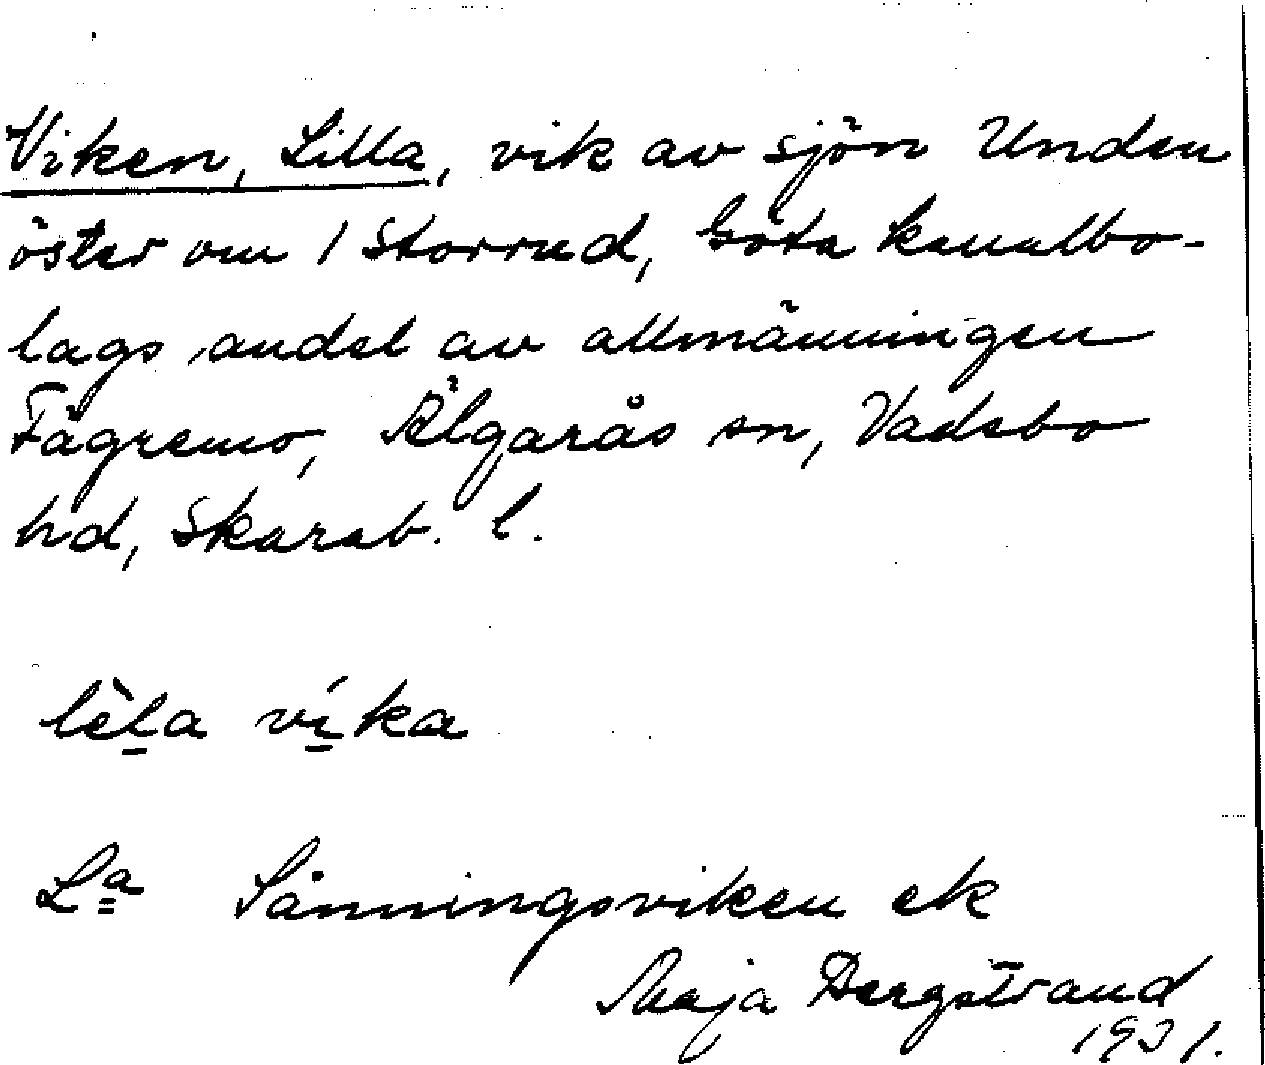 Viken, Lilla, vik av sjön Unden
öster om 1 Storrud, Göta kanalbo-
lags andel av allmänningen
Fägremo, Älgarås sn, Vadsbo
hd, Skarab. l.
lèl̠a ví̠ka
La Sänningsviken ek
Maja Bergstrand
1931.